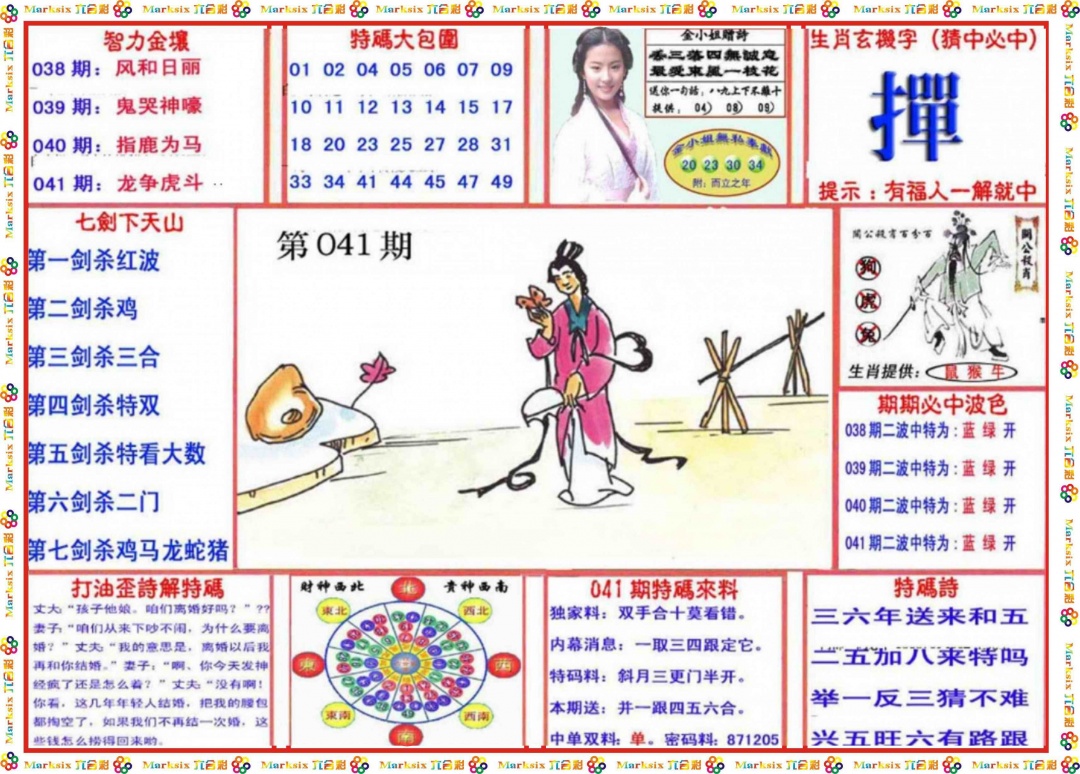 Marksix 六合彩
智力金壤
038 期：风和日丽
039 期：鬼哭神嚎
040 期：指鹿为马
041 期：龙争虎斗
特碼大包圍
01 02 04 05 06 07 09
10 11 12 13 14 15 17
18 20 23 25 27 28 31
33 34 41 44 45 47 49
金小姐赠詩
丢三落四無誠意
最爱東風一枝花
送你一句話：八九上下不離十
提供：04) 08) 09)
金小姐無私奉獻
20 23 30 34
附：而立之年
生肖玄機字（猜中必中）
撣
提示：有福人一解就中
七劍下天山
第一剑杀红波
第二剑杀鸡
第三剑杀三合
第四剑杀特双
第五剑杀特看大数
第六剑杀二门
第七剑杀鸡马龙蛇猪
第 041 期
関公殺肖百分百
関公殺肖
狗
虎
兔
生肖提供：鼠 猴 牛
期期必中波色
038 期二波中特为：蓝 绿 开
039 期二波中特为：蓝 绿 开
040 期二波中特为：蓝 绿 开
041 期二波中特为：蓝 绿 开
打油歪詩解特碼
丈夫:“孩子他娘。咱们离婚好吗？”??
妻子:“咱们从来下吵不闹，为什么要离
婚？”丈夫:“我的意思是，离婚以后我
再和你结婚。”妻子:“啊、你今天发神
经疯了还是怎么着？”丈夫:“没有啊！
你看，这几年年轻人结婚，把我的腰包
都掏空了，如果我们不再结一次婚，这
些钱怎么捞得回来哟。
财神西北
貴神西南
北
東北
西北
東
西
東南
西南
南
041 期特碼來料
独家料：双手合十莫看错。
内幕消息：一取三四跟定它。
特码料：斜月三更门半开。
本期送：并一跟四五六合。
中单双料：单。密码料：871205
特碼詩
三六年送来和五
二五加八来特吗
举一反三猜不难
兴五旺六有路跟